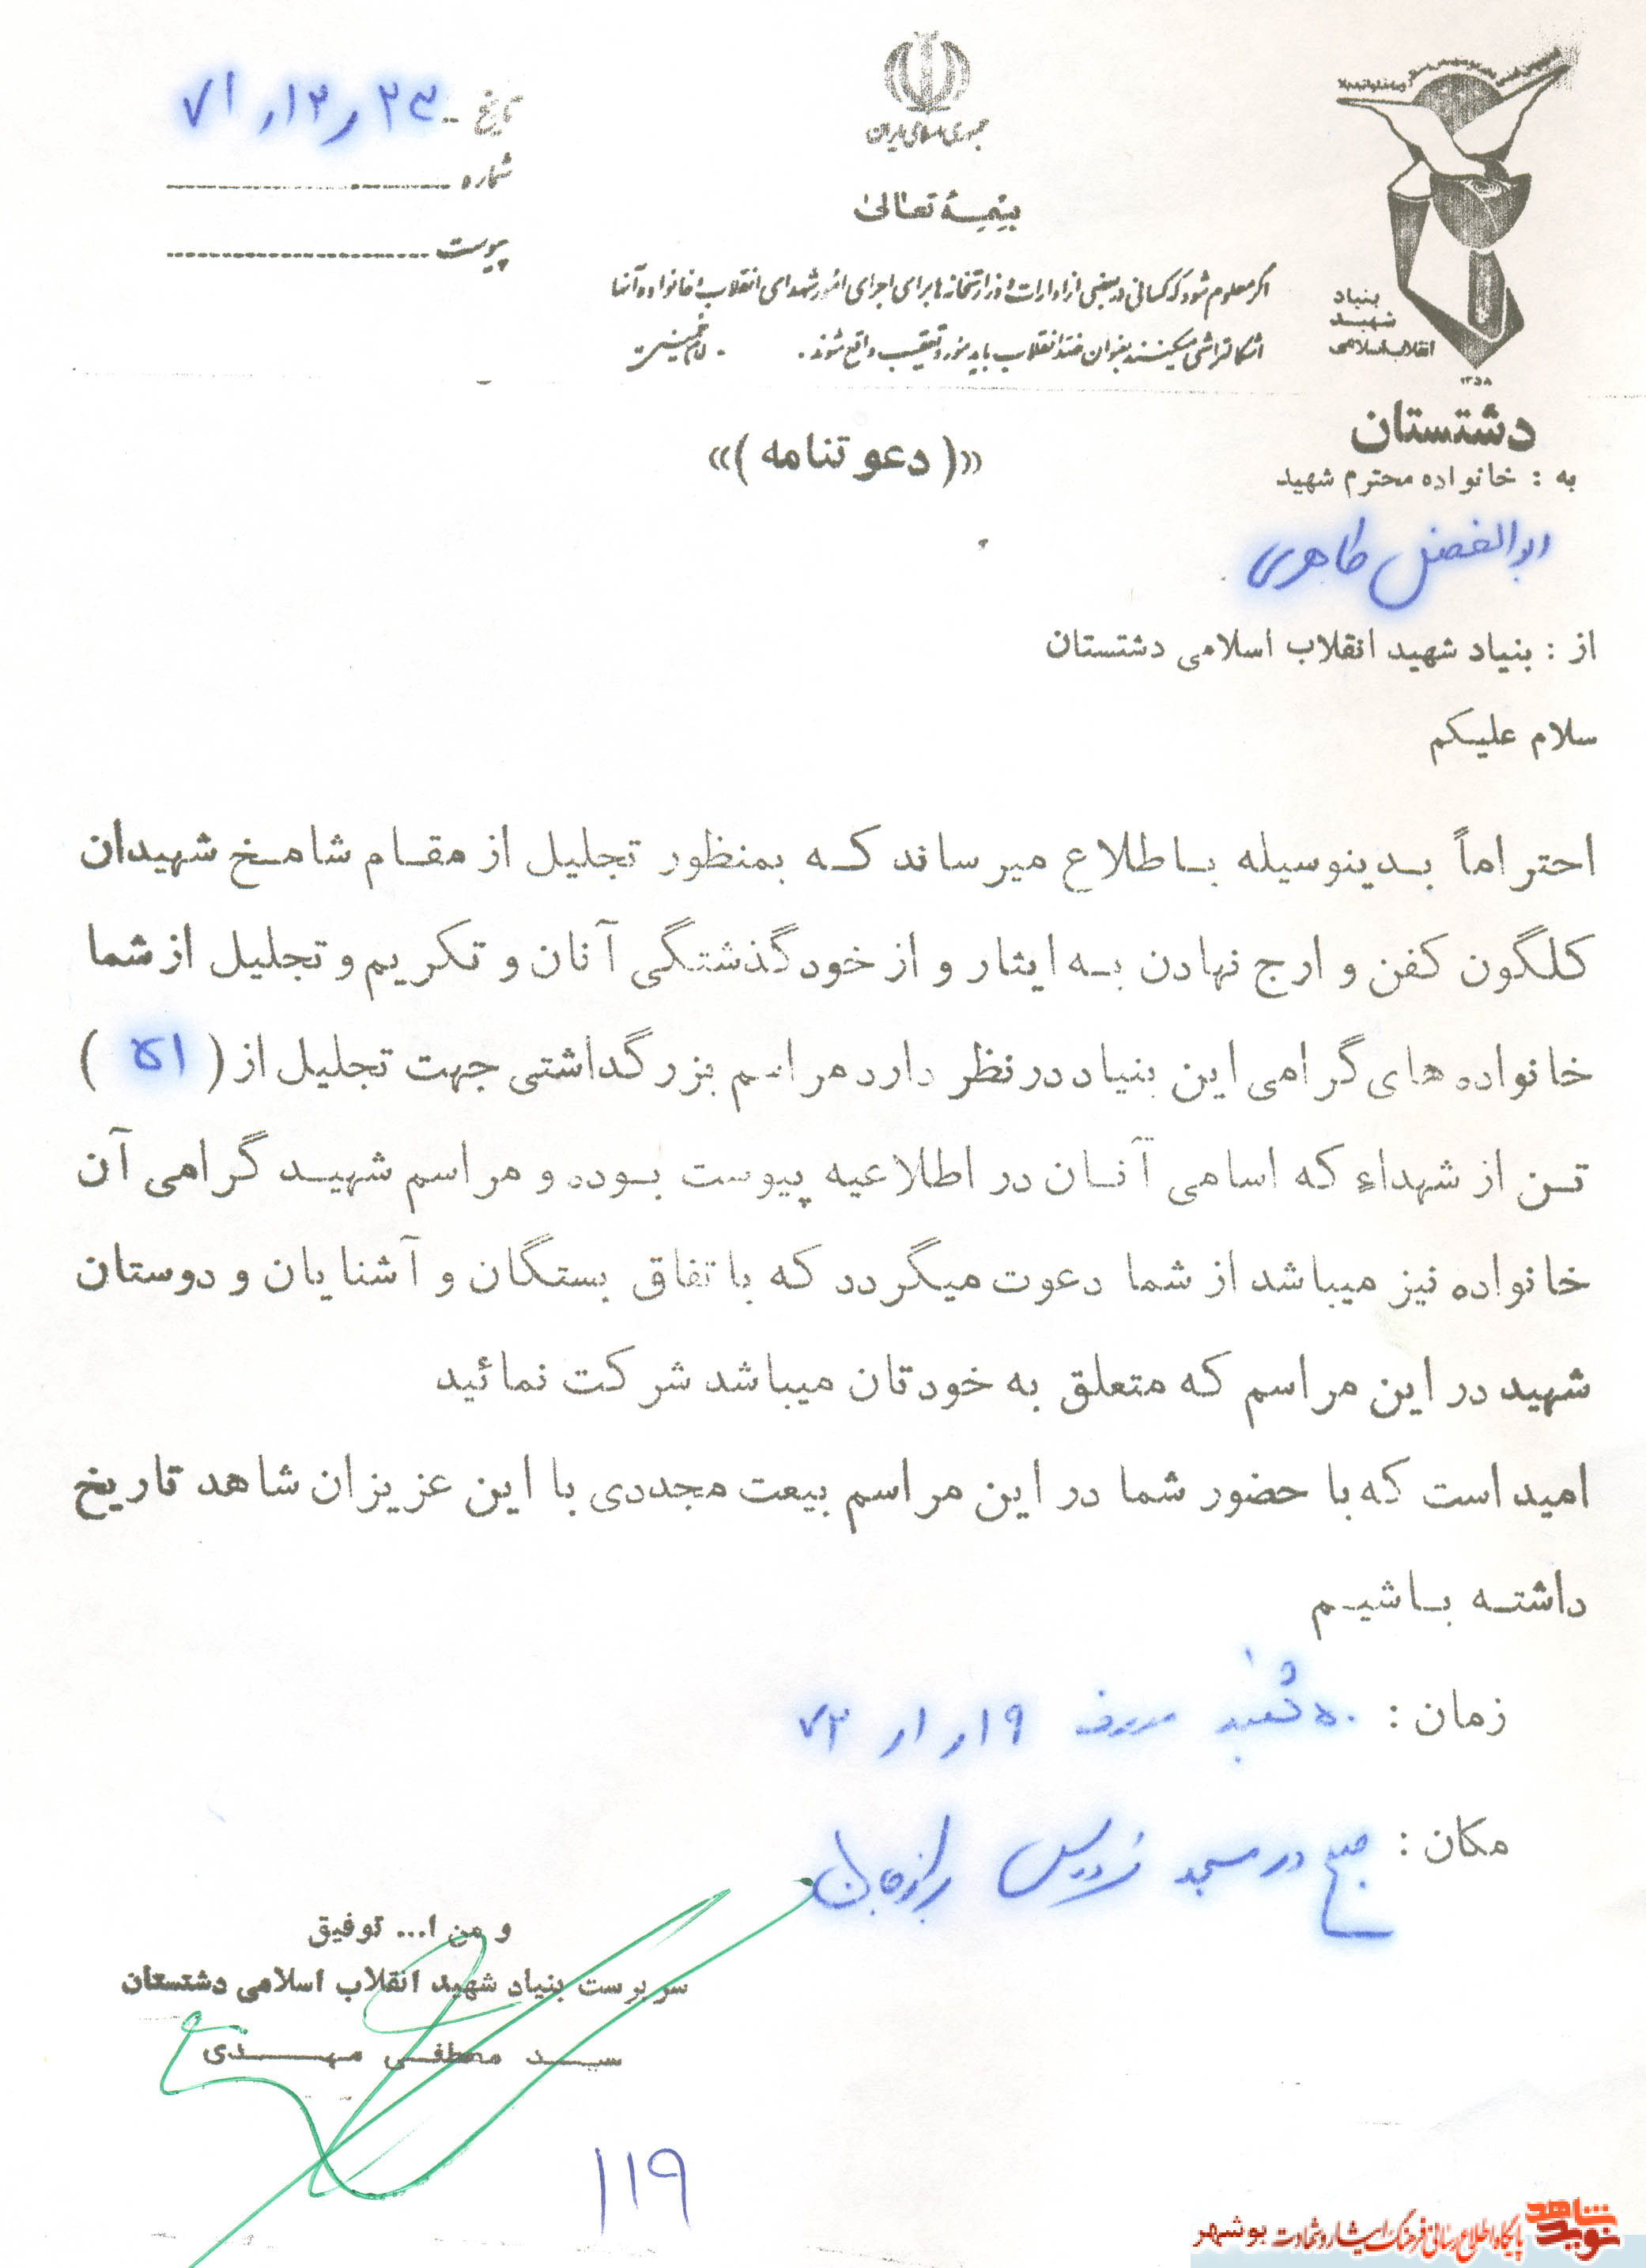 جمهوری اسلامی ایران
بسمه تعالی
تاریخ ۲۳ر۱۲ر۷۱
شماره
پیوست
اگر معلوم شود که کسانی در بعضی از ادارات و وزارتخانه ها برای اجرای امور شهدای انقلاب و خانواده آنها
اشکالتراشی میکنند بعنوان ضد انقلاب باید مورد تعقیب واقع شوند. امام خمینی
بنیاد
شهید
انقلاب اسلامی
۱۳۵۸
دشتستان
«( دعوتنامه )»
به : خانواده محترم شهید
ابوالفضل طاهری
از : بنیاد شهید انقلاب اسلامی دشتستان
سلام علیکم
احتراماً بدینوسیله باطلاع میرساند که بمنظور تجلیل از مقام شامخ شهیدان
کلگون کفن و ارج نهادن به ایثار و از خودگذشتگی آنان و تکریم و تجلیل از شما
خانواده های گرامی این بنیاد در نظر دارد مراسم بزرگداشتی جهت تجلیل از ( ۵۱ )
تن از شهداء که اسامی آنان در اطلاعیه پیوست بوده و مراسم شهید گرامی آن
خانواده نیز میباشد از شما دعوت میگردد که باتفاق بستگان و آشنایان و دوستان
شهید در این مراسم که متعلق به خودتان میباشد شرکت نمائید
امید است که با حضور شما در این مراسم بیعت مجددی با این عزیزان شاهد تاریخ
داشته باشیم
زمان : ۵ شنبه مورخ ۱۹ر۱ر۷۲
مکان : صبح در مسجد فردوس برازجان
و من ا... توفیق
سرپرست بنیاد شهید انقلاب اسلامی دشتستان
سید مصطفی مهندی
۱۱۹
نوید شاهد
پایگاه اطلاع رسانی فرهنگ ایثار و شهادت بوشهر